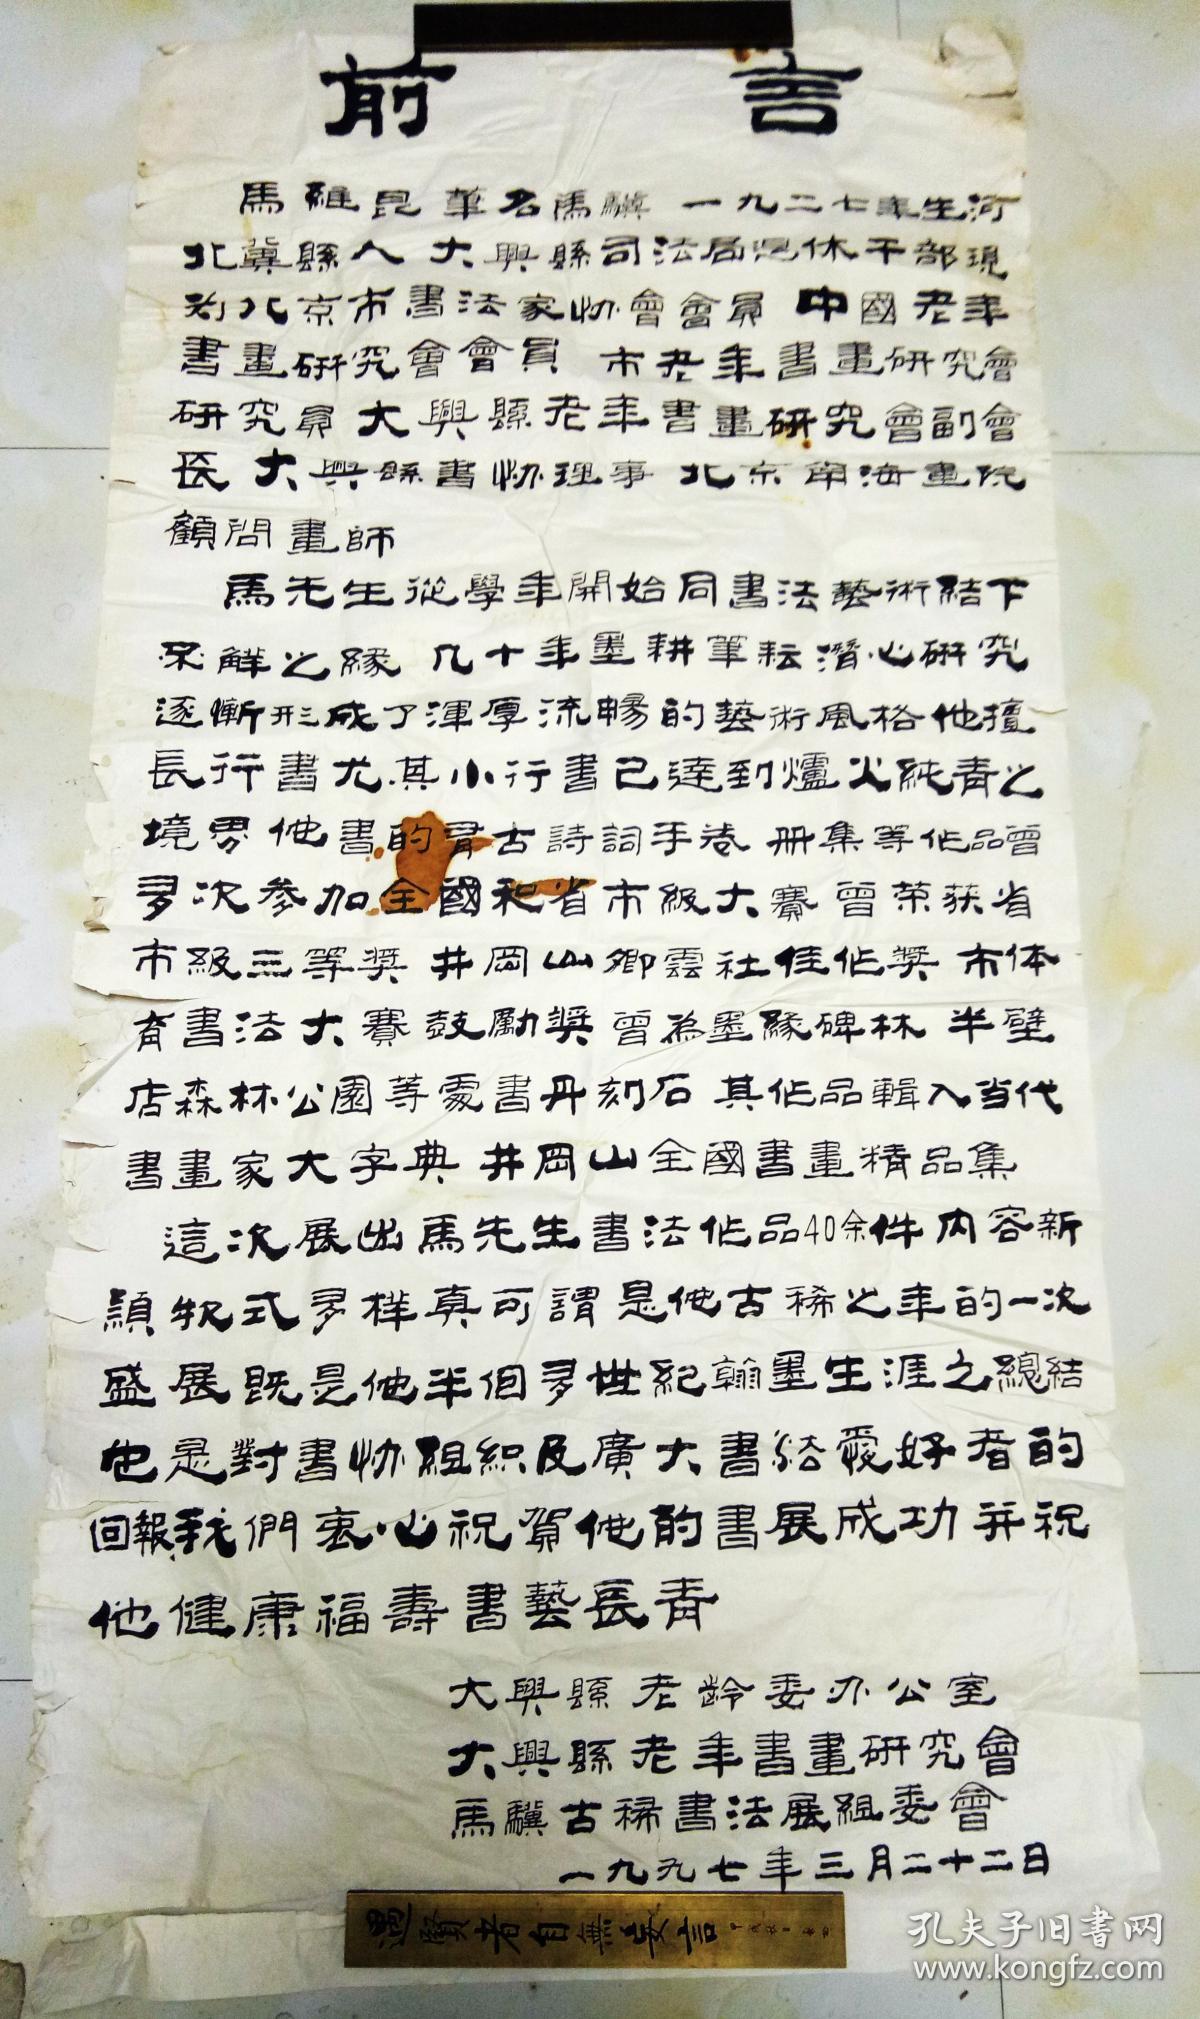 前言
馬維昆 筆名馬驥 一九二七年生河
北冀縣人 大興縣司法局退休干部現
为北京市書法家协會會員 中國老年
書畫研究會會員 市老年書畫研究會
研究員 大興縣老年書畫研究會副會
長 大興縣書协理事 北京南海畫院
顧問畫師
馬先生從學年開始同書法藝術結下
不解之緣 几十年墨耕筆耘潛心研究
逐慚形成了渾厚流暢的藝術風格他擅
長行書尤其小行書已達到爐火純青之
境界 他書的有古詩詞手卷 冊集等作品曾
多次參加全國和省市級大賽 曾荣获省
市級三等奖 井岡山卿雲社佳作奬 市体
育書法大賽鼓勵奬 曾為墨緣碑林 半壁
店森林公園等處書丹刻石 其作品輯入当代
書畫家大字典 井岡山全國書畫精品集
這次展出馬先生書法作品40余件 内容新
穎 形式多样真可謂是他古稀之年的一次
盛展既是他半個多世紀翰墨生涯之總結
也是對書协組織及廣大書法愛好者的
回報我們衷心祝賀他的書展成功并祝
他健康福壽書藝長青
大興縣老龄委办公室
大興縣老年書畫研究會
馬驥古稀書法展組委會
一九九七年三月二十二日
遇賢者自無妄言
孔夫子旧书网
www.kongfz.com